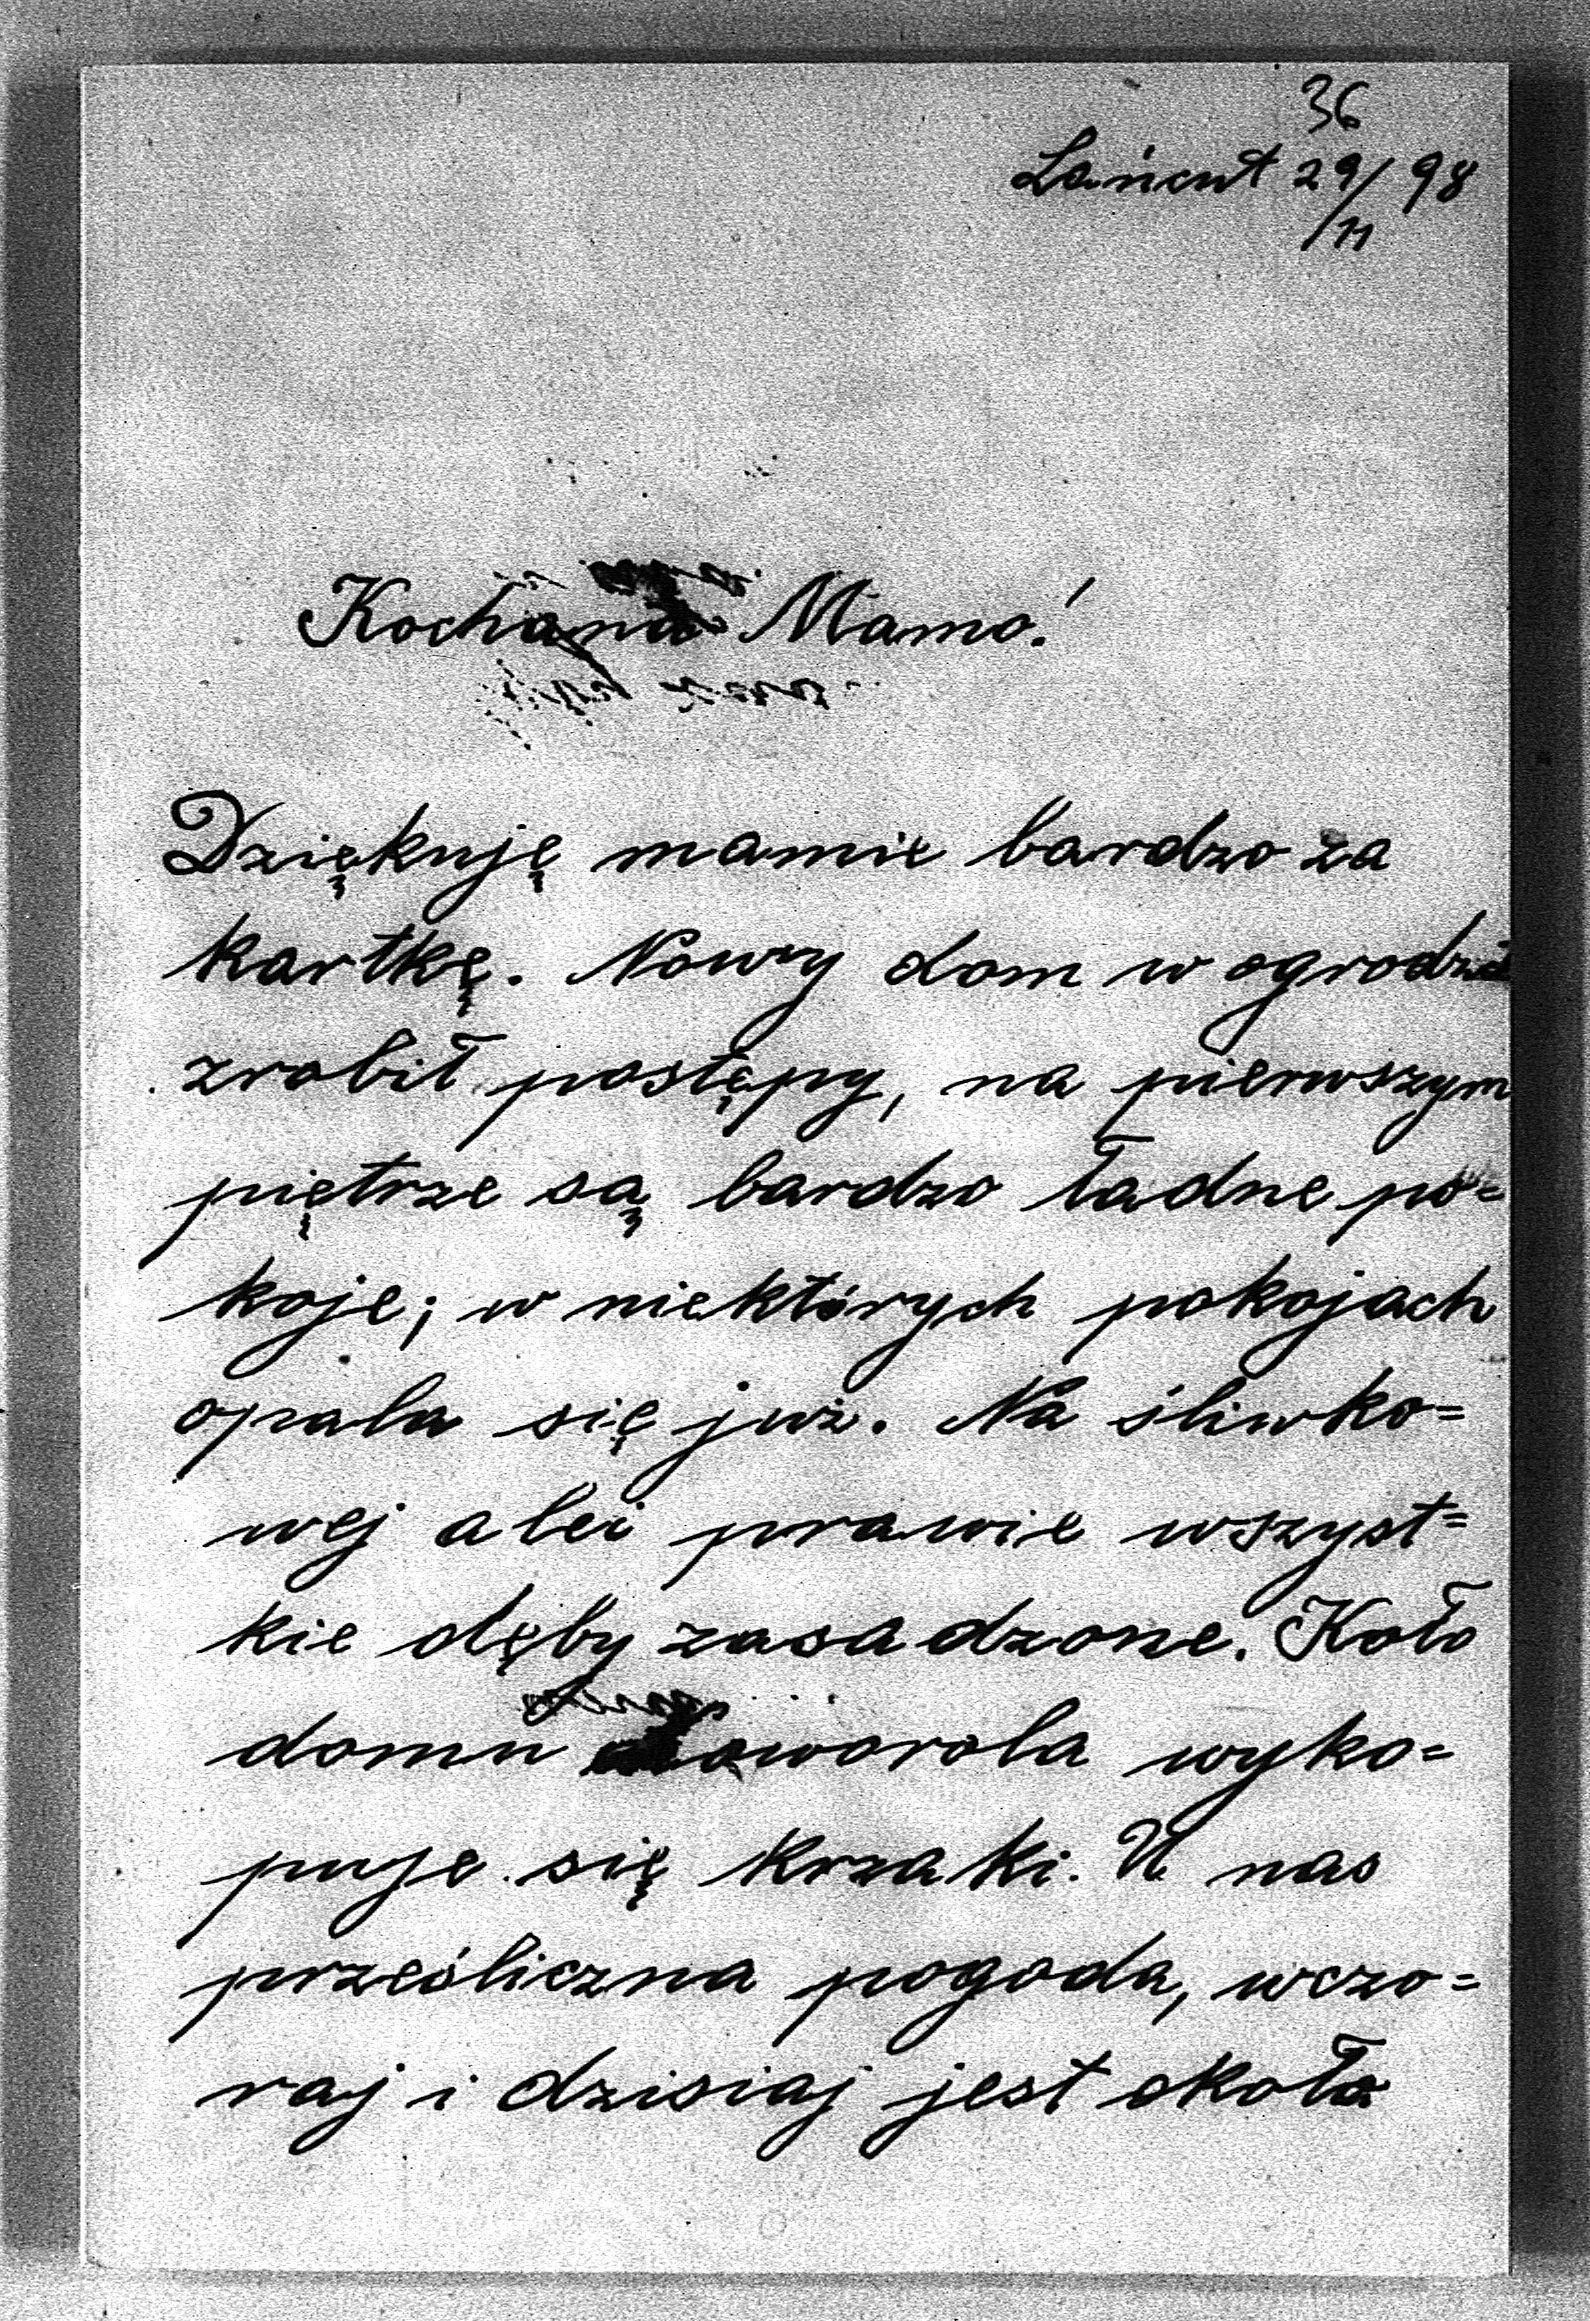 36
Łańcut 29/11 98
Kochana Mamo!
Dziękuję mamie bardzo za
kartkę. Nowy dom w ogrodzie
zrobił postępy, na pierwszym
piętrze są bardzo ładne po=
koje; w niektórych pokojach
opala się już. Na śliwko=
wej alei prawie wszyst=
kie dęby zasadzone. Koło
domu wyko=
puje się krzaki. U nas
prześliczna pogoda, wczo=
raj i dzisiaj jest około